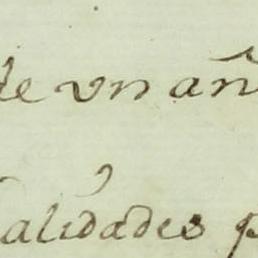 de un añ
alidades p